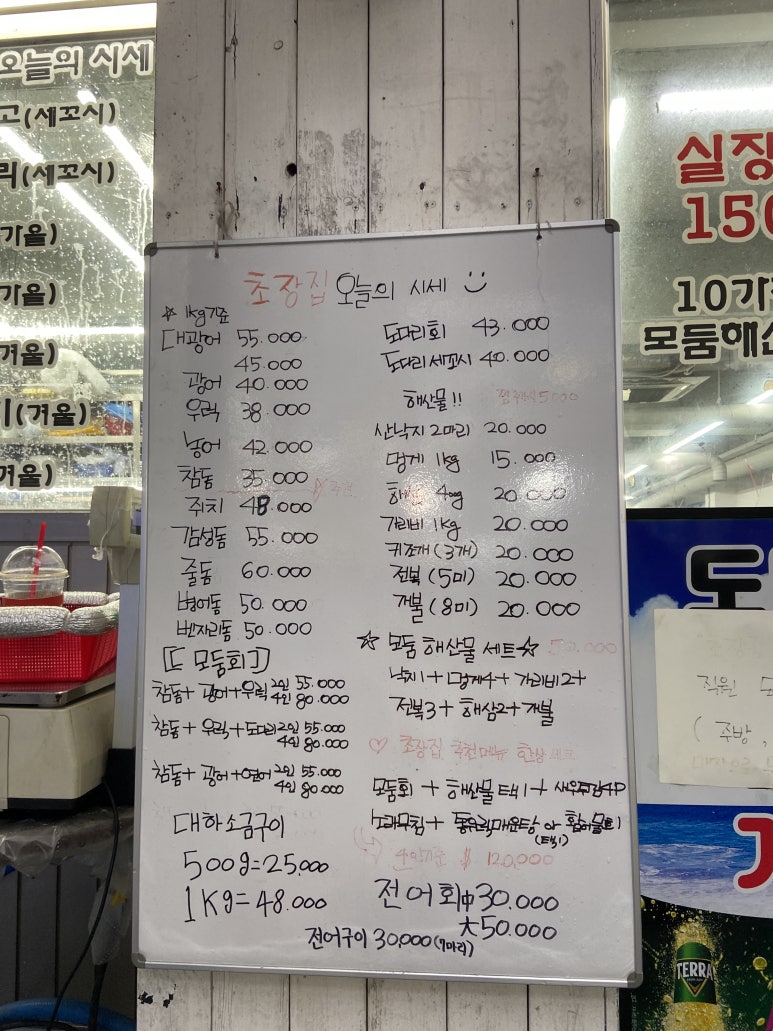 오늘의 시세
고(세꼬시)
리(세꼬시)
가을)
가을)
겨울)
(겨울)
겨울)
초장집 오늘의 시세
☆ 1kg기준
대광어 55.000
45.000
광어 40.000
우럭 38.000
농어 42.000
참돔 35.000
쥐치 48.000
감성돔 55.000
줄돔 60.000
병어돔 50.000
벤자리돔 50.000
[[모둠회]]
참돔+광어+우럭 2인 55.000
4인 80.000
참돔+우럭+도다리 2인 55.000
4인 80.000
참돔+광어+연어 2인 55.000
4인 80.000
대하소금구이
500g=25.000
1Kg=48.000
도다리회 43.000
도다리세꼬시 40.000
해산물!!
산낙지 2마리 20.000
멍게 1kg 15.000
해삼 400g 20.000
가리비 1kg 20.000
키조개(3개) 20.000
전복(5미) 20.000
개불(8미) 20.000
☆ 모둠 해산물 세트☆ 50.000
낙지1+멍게4+가리비2+
전복3+해삼2+개불
♡ 초장집 추천메뉴 한상
모둠회 + 해산물 택1 + 새우튀김4P
노래무침+ 통우럭매운탕 or 활어물회
(택1)
4인기준 120,000
전어회中30.000
大50.000
전어구이 30,000(7마리)
실장
150
10가
모둠해산
직원
(주방,
TERRA